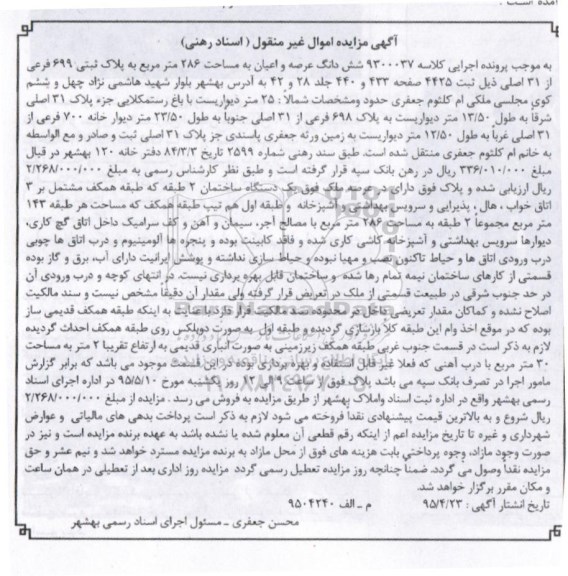 آگهی مزایده اموال غیر منقول ( اسناد رهنی)
به موجب پرونده اجرایی کلاسه ۹۳۰۰۰۳۷ شش دانگ عرصه و اعیان به مساحت ۲۸۶ متر مربع به پلاک ثبتی ۶۹۹ فرعی
از ۳۱ اصلی ذیل ثبت ۴۴۲۵ صفحه ۴۳۳ و ۴۴۰ جلد ۲۸ و ۴۲ به آدرس بهشهر بلوار شهید هاشمی نژاد چهل و ششم
کوی مجلسی ملکی ام کلثوم جعفری حدود ومشخصات شمالاً : ۲۵ متر دیواریست با باغ رستمکلایی جزء پلاک ۳۱ اصلی
شرقا به طول ۱۳/۵۰ متر دیواریست به پلاک ۶۹۸ فرعی از ۳۱ اصلی جنوبا به طول ۲۳/۵۰ متر دیوار خانه ۷۰۰ فرعی از
۳۱ اصلی غربا به طول ۱۲/۵۰ متر دیواریست به زمین ورثه جعفری پاسندی جز پلاک ۳۱ اصلی ثبت و صادر و مع الواسطه
به خانم ام کلثوم جعفری منتقل شده است. طبق سند رهنی شماره ۲۵۹۹ تاریخ ۸۴/۳/۳ دفتر خانه ۱۲۰ بهشهر در قبال
مبلغ ۳۳۶/۰۱۰/۰۰۰ ریال در رهن بانک سپه قرار گرفته است و طبق نظر کارشناس رسمی به مبلغ ۲/۲۶۸/۰۰۰/۰۰۰
ریال ارزیابی شده و پلاک فوق دارای در عرصه ملک فوق یک دستگاه ساختمان ۲ طبقه که طبقه همکف مشتمل بر ۳
اتاق خواب ، هال ، پذیرایی و سرویس بهداشتی و آشپزخانه و طبقه اول هم تیپ طبقه همکف که مساحت هر طبقه ۱۴۳
متر مربع مجموعاً ۲ طبقه به مساحت ۲۸۶ متر مربع با مصالح آجر، سیمان و آهن و کف سرامیک داخل اتاق گچ کاری،
دیوارها سرویس بهداشتی و آشپزخانه کاشی کاری شده و فاقد کابینت بوده و پنجره ها آلومینیوم و درب اتاق ها چوبی
درب ورودی اتاق ها و حیاط تاکنون نصب و مهیا نبوده و حیاط سازی نداشته و پوشش ایرانیت دارای آب، برق و گاز بوده
قسمتی از کارهای ساختمان نیمه تمام رها شده و ساختمان قابل بهره برداری نیست. در انتهای کوچه و درب ورودی آن
در حد جنوب شرقی در طبیعت قسمتی از ملک در تعریض قرار گرفته ولی مقدار آن دقیقاً مشخص نیست و سند مالکیت
اصلاح نشده و کماکان مقدار تعریضی داخل در محدوده سند مالکیت قرار دارد با عنایت به اینکه طبقه همکف قدیمی ساز
بوده که در موقع اخذ وام این طبقه کلاً بازسازی گردیده و طبقه اول به صورت دوپلکس روی طبقه همکف احداث گردیده
لازم به ذکر است در قسمت جنوب غربی طبقه همکف زیرزمینی به صورت انباری قدیمی به ارتفاع تقریبا ۲ متر به مساحت
۳۰ متر مربع با درب آهنی که فعلا غیر قابل استفاده و بهره برداری بوده در این قسمت موجود می باشد که برابر گزارش
مامور اجرا در تصرف بانک سپه می باشد پلاک فوق از ساعت ۹ الی ۱۲ روز یکشنبه مورخ ۹۵/۵/۱۰ در اداره اجرای اسناد
رسمی بهشهر واقع در اداره ثبت اسناد واملاک بهشهر از طریق مزایده به فروش می رسد . مزایده از مبلغ ۲/۲۶۸/۰۰۰/۰۰۰
ریال شروع و به بالاترین قیمت پیشنهادی نقداً فروخته می شود لازم به ذکر است پرداخت بدهی های مالیاتی و عوارض
شهرداری و غیره تا تاریخ مزایده اعم از اینکه رقم قطعی آن معلوم شده یا نشده باشد به عهده برنده مزایده است و نیز در
صورت وجود مازاد، وجوه پرداختی بابت هزینه های فوق از محل مازاد به برنده مزایده مسترد خواهد شد و نیم عشر و حق
مزایده نقدا وصول می گردد. ضمناً چنانچه روز مزایده تعطیل رسمی گردد مزایده روز اداری بعد از تعطیلی در همان ساعت
و مکان مقرر برگزار خواهد شد.
تاریخ انتشار آگهی : ۹۵/۴/۲۳ م ـ الف ۹۵۰۴۲۴۰
محسن جعفری ـ مسئول اجرای اسناد رسمی بهشهر